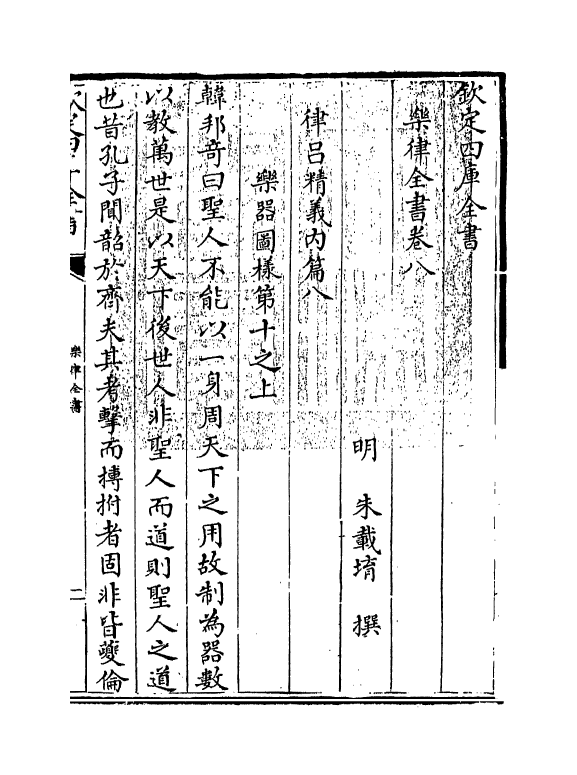 欽定四庫全書
樂律全書卷八
明 朱載堉 撰
律呂精義内篇八
樂器圖樣第十之上
韓邦竒曰聖人不能以一身周天下之用故制為器數
以教萬世是以天下後世人非聖人而道則聖人之道
也昔孔子聞韶於齊夫其考擊而摶拊者固非皆夔倫
欽定四庫全書
樂律全書
二